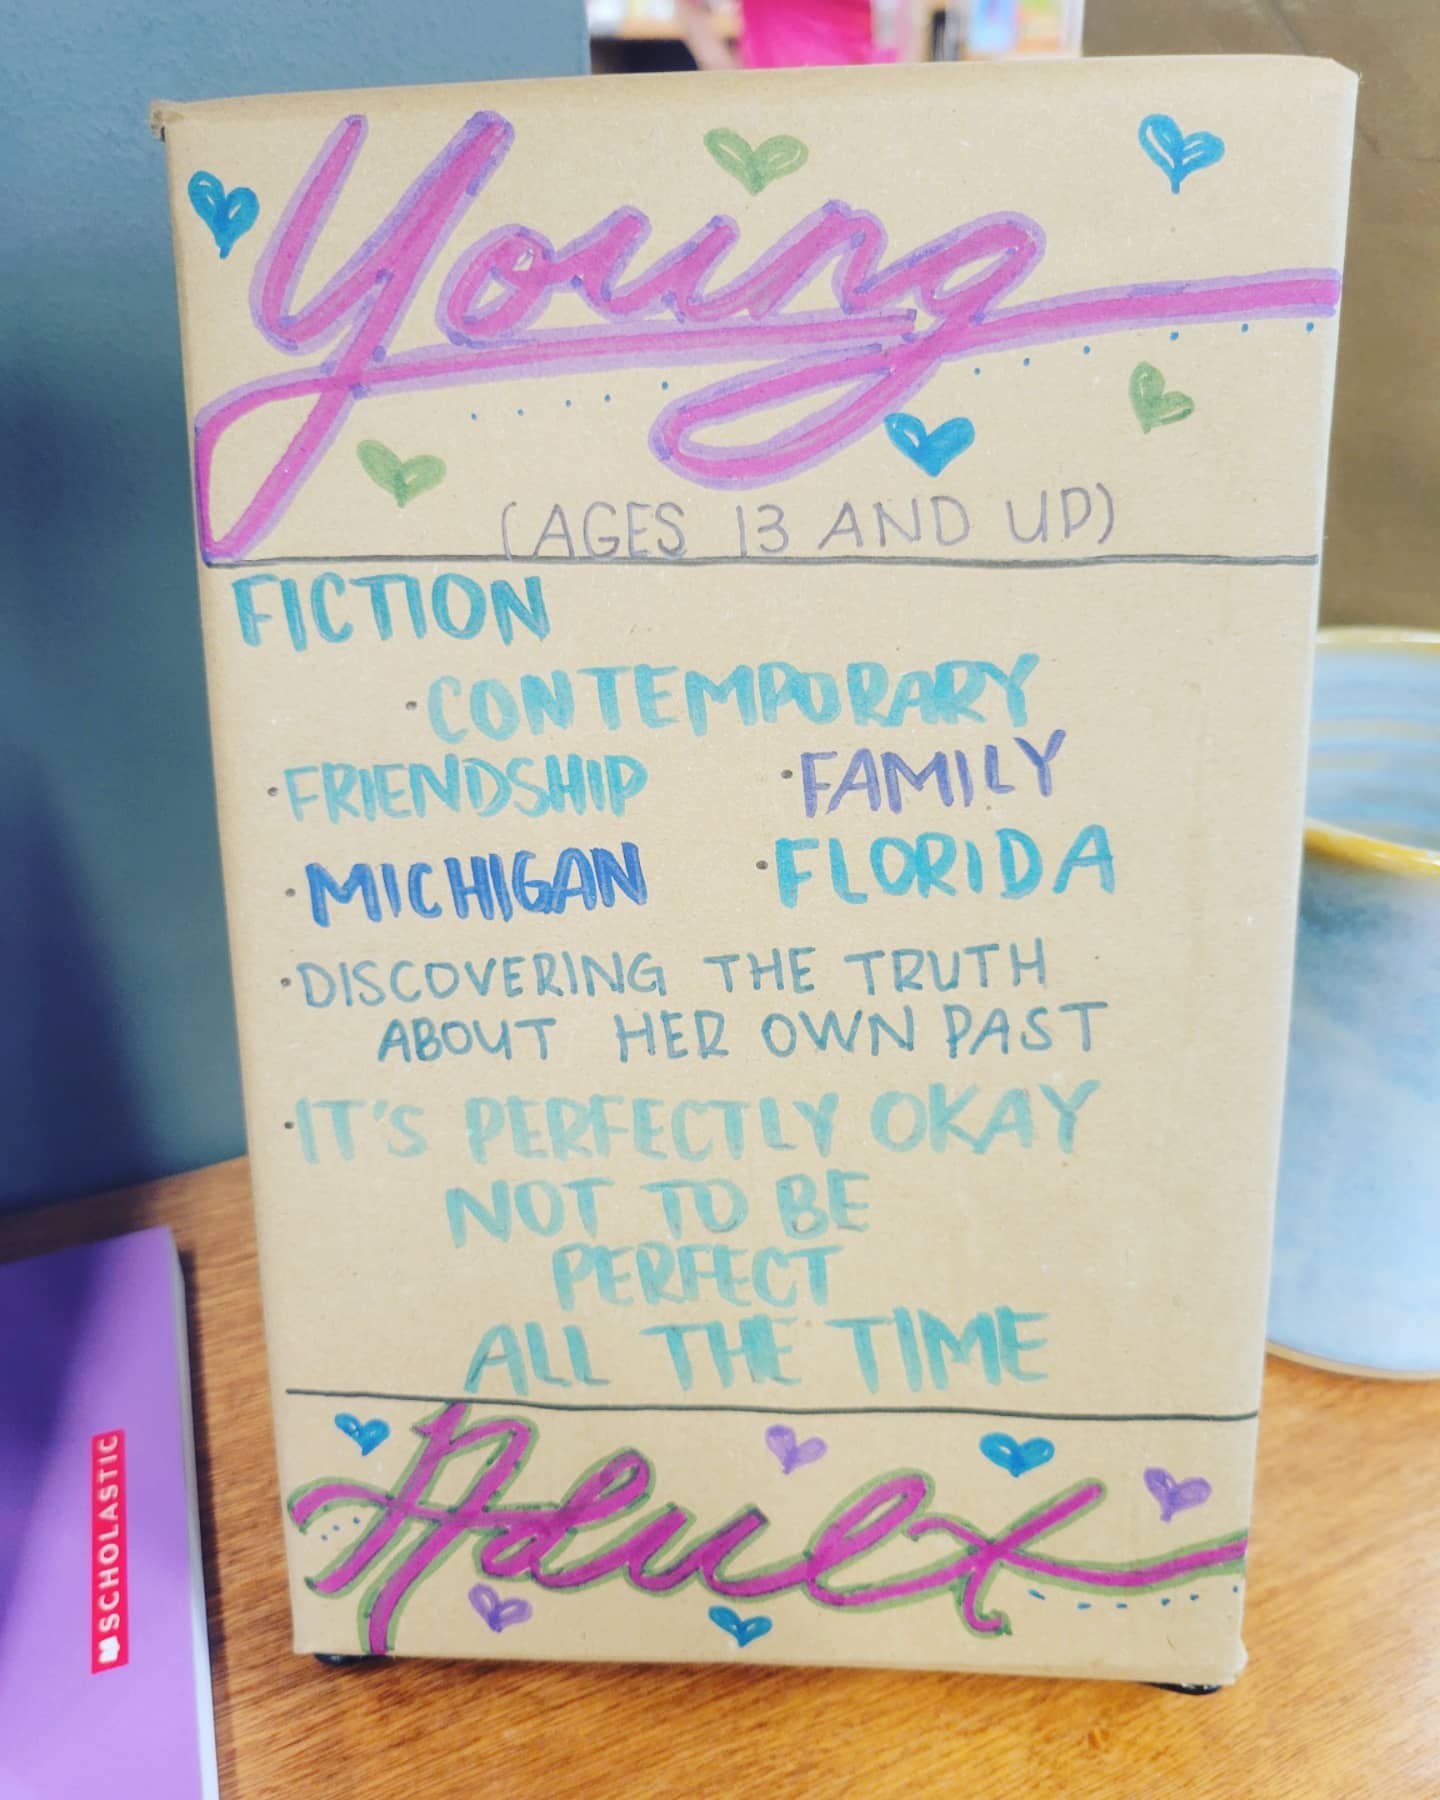 Young
(AGES 13 AND UP)
FICTION
•CONTEMPORARY
•FRIENDSHIP •FAMILY
•MICHIGAN •FLORIDA
•DISCOVERING THE TRUTH
ABOUT HER OWN PAST
•IT'S PERFECTLY OKAY
NOT TO BE
PERFECT
ALL THE TIME
Adult
SCHOLASTIC